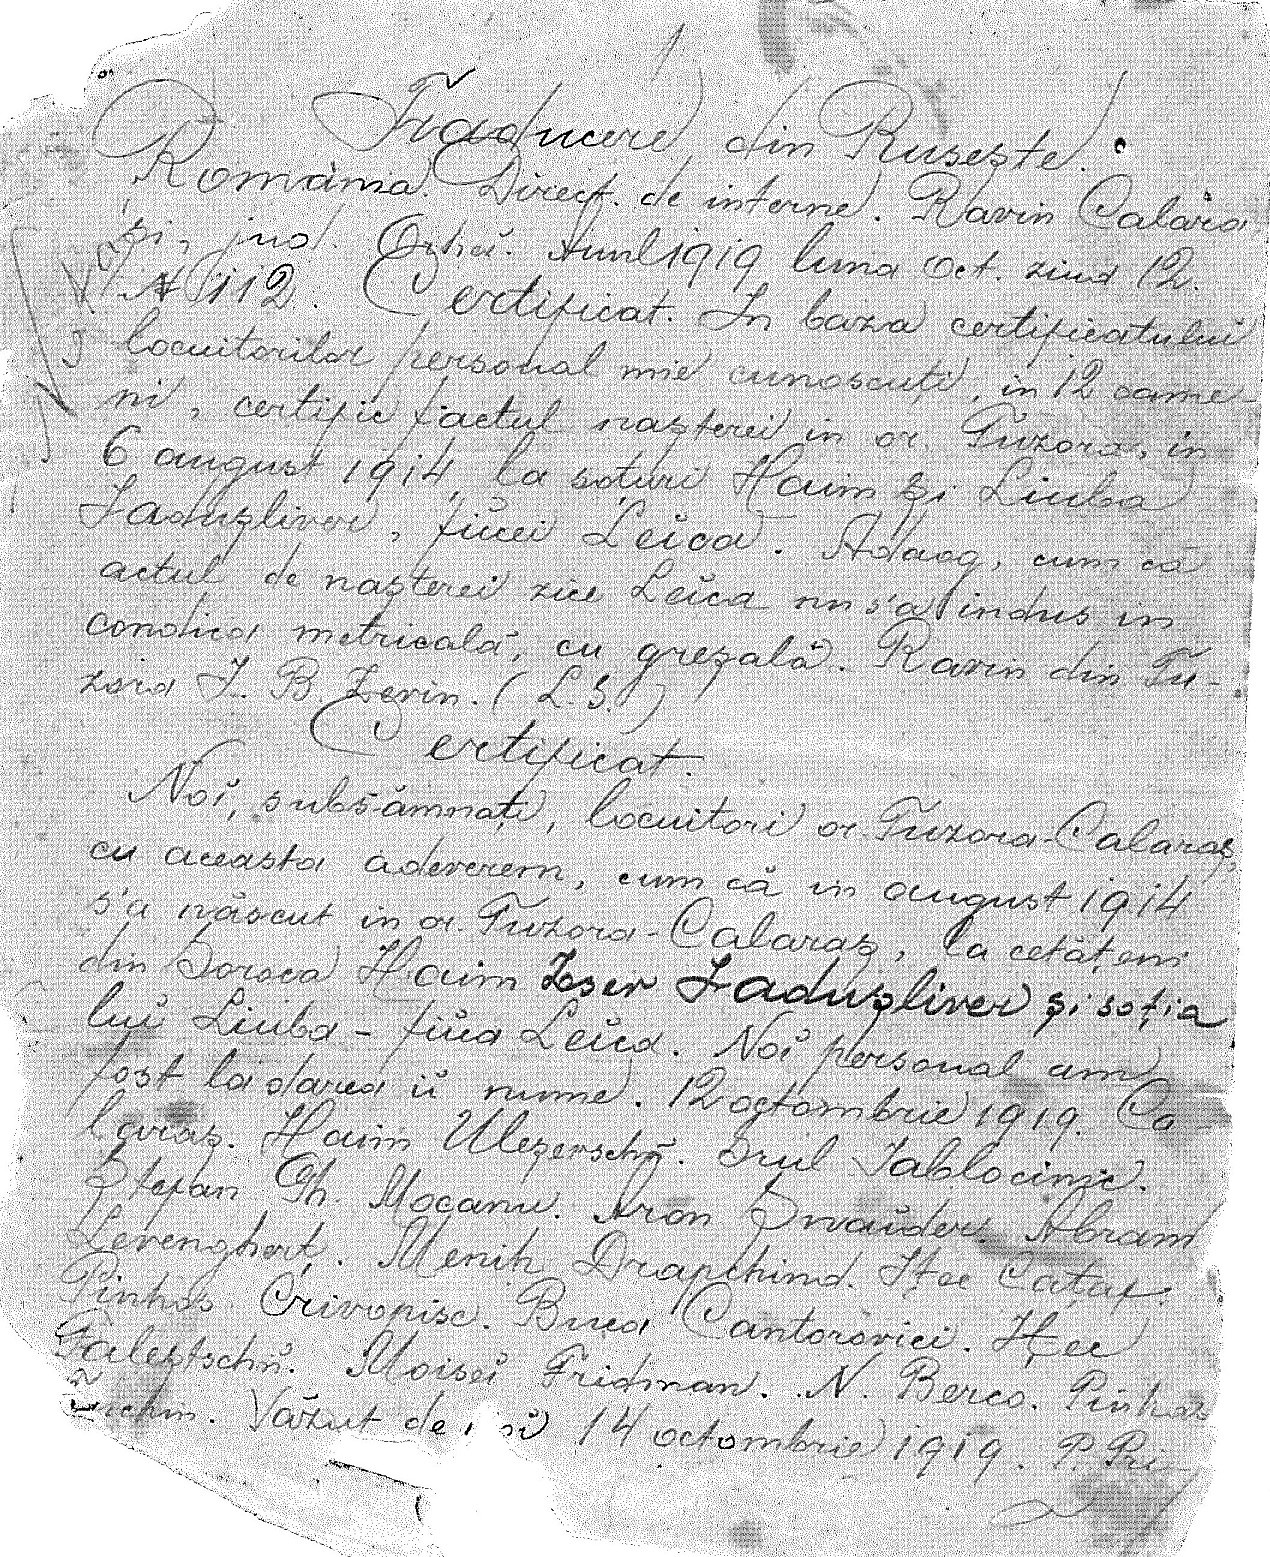 Traducere din Rusește.
România. Direct. de interne. Ravin Calăra
și, jud. Orheĭ. Anul 1919 luna Oct. ziua 12.
№ 112. Certificat. In baza certificatuluĭ
locuitorilor personal mie cunoscuți, in 12 oame-
nĭ, certific factul nașterei in or. Tuzora, in
6 august 1914 la soțuri Haim și Liuba
Zadușliver, fiicei Leica. Adaog, cum că
actul de nașterei zice Leica nu s'a indus in
condica metricală, cu greșală. Ravin din Tu-
zora I. B Zevin. (L. S.)
Certificat.
Noĭ, subsămnați, locuitori or. Tuzora-Calaraș,
cu aceasta adeverem, cum că in august 1914
s'a născut in or. Tuzora-Calaraș, la cetățeni
din Soroca Haim Iser Zadușliver și soția
luĭ Liuba - fiica Leica. Noĭ personal am
fost la darea iĭ nume. 12 octombrie 1919. Ca-
laraș. Haim Sruil Iablocinic.
Ștefan Gh. Mocanu. Aron Snaider. Abram
Menih Ițec Cațaf.
Pinhos Crivopisc. Cantorovici. Ițec
Moiseĭ Fridman. N. Berco. Pinhas
Văzut de 14 octombrie 1919. P. Pri